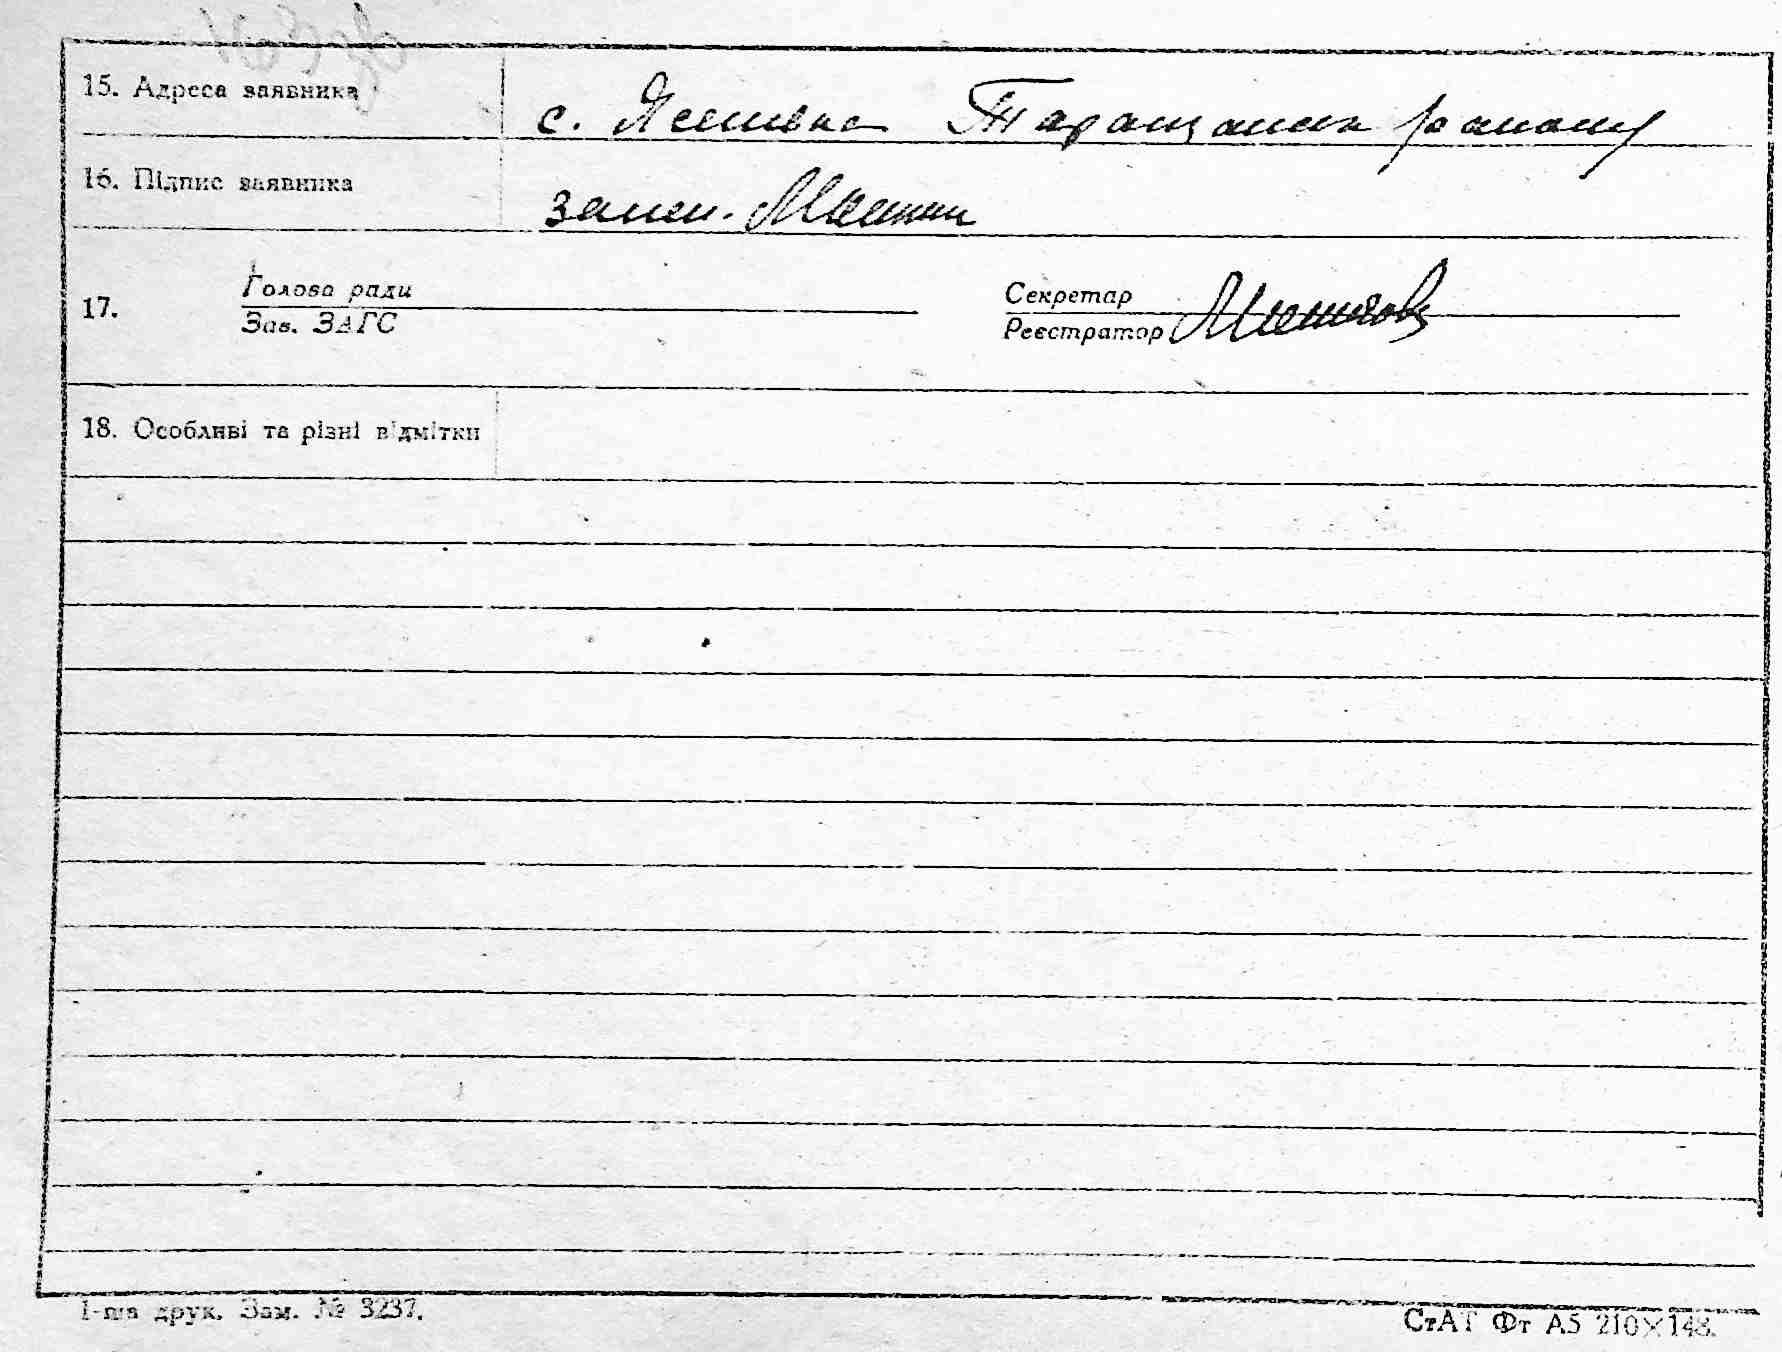 15. Адреса заявника
с. Ясенівка Таращанськ району
16. Підпис заявника
17.
Голова ради
Зав. ЗАГС
Секретар
Реєстратор
18. Особливі та різні відмітки
1-ша друк. Зам. № 3237.
СтАТ Фт А5 210×148.